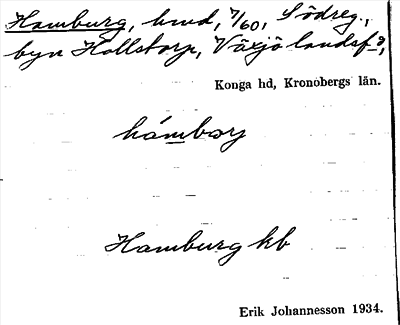 Hamburg, hmd, 7/60, Södreg.,
byn Hollstorp, Växjö landsf?,
Konga hd, Kronobergs län.
hámborg
Hamburg kb
Erik Johannesson 1934.